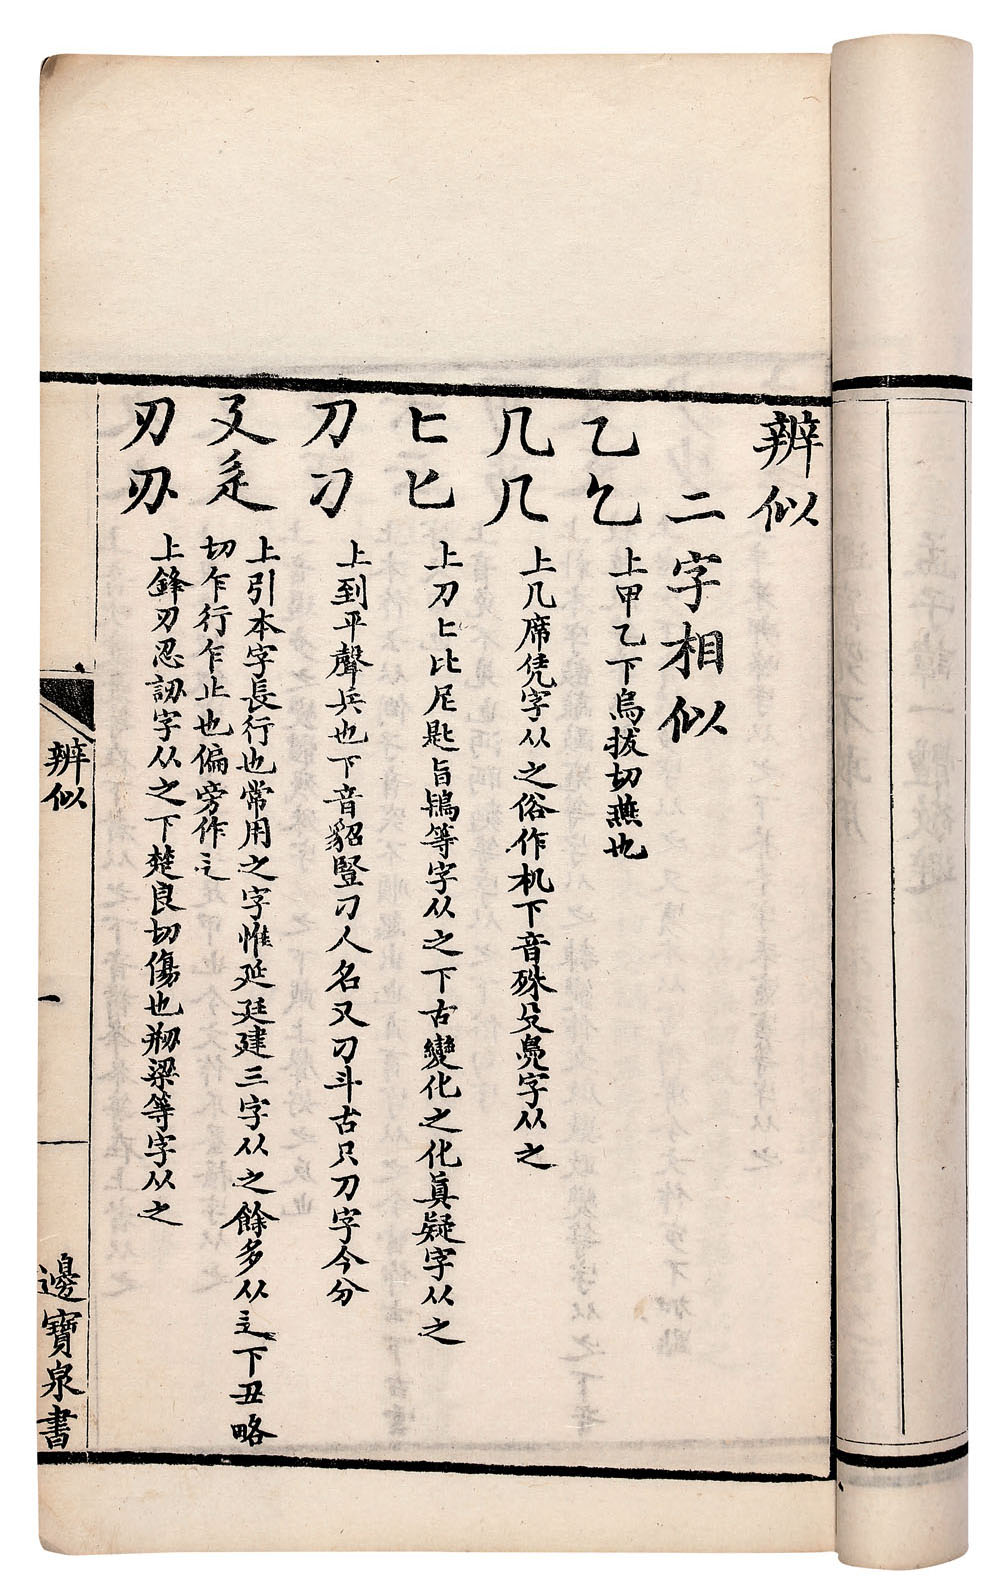 辨似
二字相似
乙乞 上甲乙下烏拔切燕也
几几 上几席凭字从之俗作机下音殊殳鳧字从之
匕匕 上刀匕比尼匙旨鴇等字从之下古變化之化眞疑字从之
刀刁 上到平聲兵也下音貂豎刁人名又刁斗古只刀字今分
廴辵 上引本字長行也常用之字惟延廷建三字从之餘多从辶下丑略
切乍行乍止也偏旁作辶
刃刅 上鋒刃忍訒字从之下楚良切傷也剏梁等字从之
辨似
一
邊寶泉書